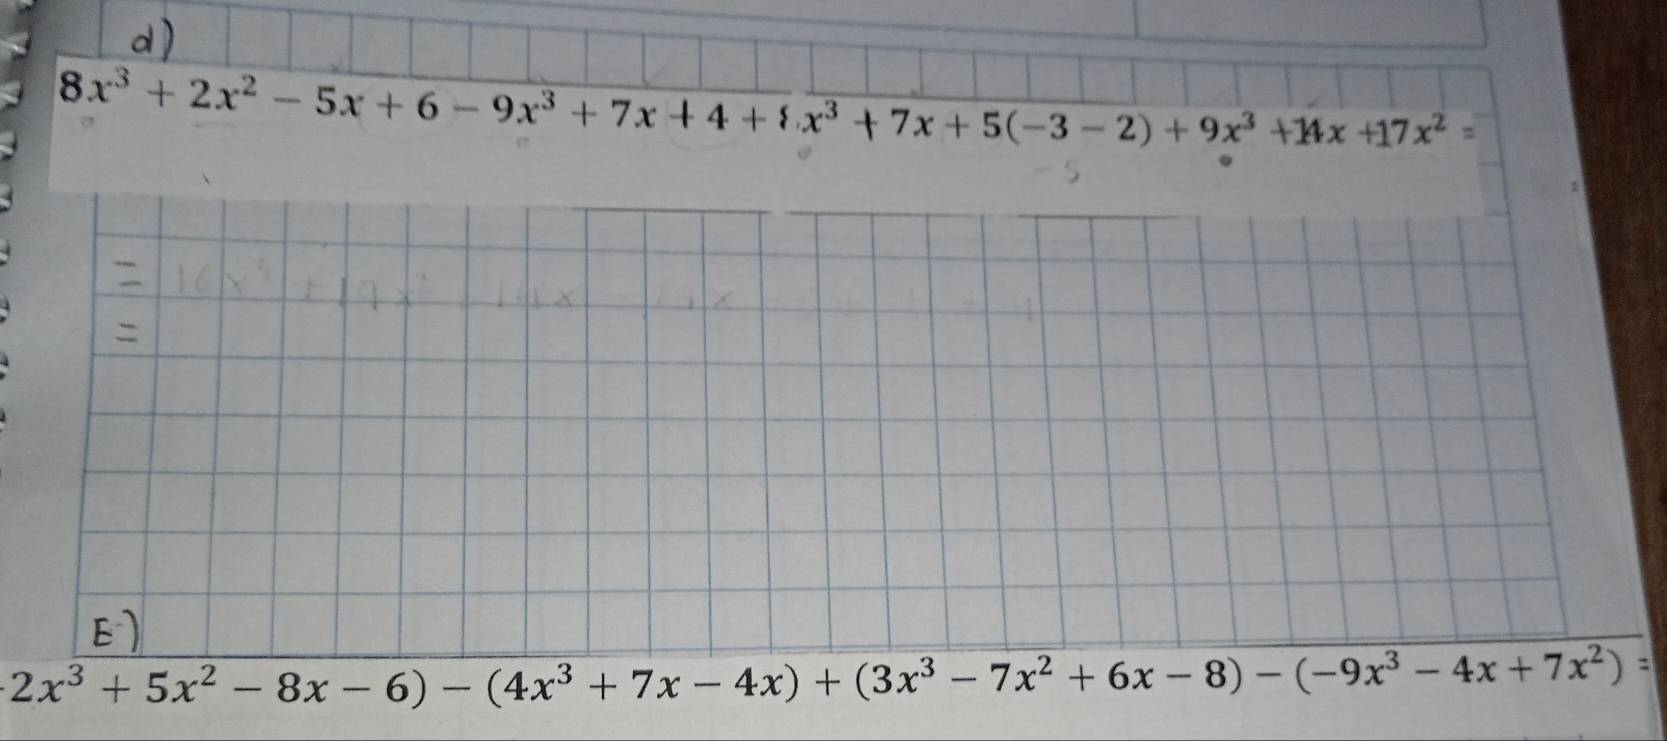 d)
8x³ + 2x² − 5x + 6 − 9x³ + 7x + 4 + x³ + 7x + 5(−3 − 2) + 9x³ +14x +17x² =
-5
= 16x³ + 19x²
=
E)
2x³ + 5x² − 8x − 6) − (4x³ + 7x − 4x) + (3x³ − 7x² + 6x − 8) − (−9x³ − 4x + 7x²) =